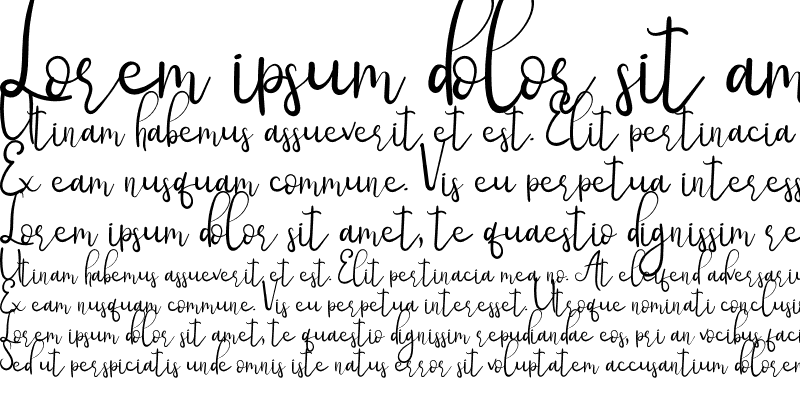 Lorem ipsum dolor sit am
Utinam habemus assueverit et est. Elit pertinacia
Ex eam nusquam commune. Vis eu perpetua interess
Lorem ipsum dolor sit amet, te quaestio dignissim re
Utinam habemus assueverit et est. Elit pertinacia mea no. At eleifend adversariu
Ex eam nusquam commune. Vis eu perpetua interesset. Utroque nominati conclusi
Lorem ipsum dolor sit amet, te quaestio dignissim repudiandae eos, pri an vocibus faci
Sed ut perspiciatis unde omnis iste natus error sit voluptatem accusantium dolorem